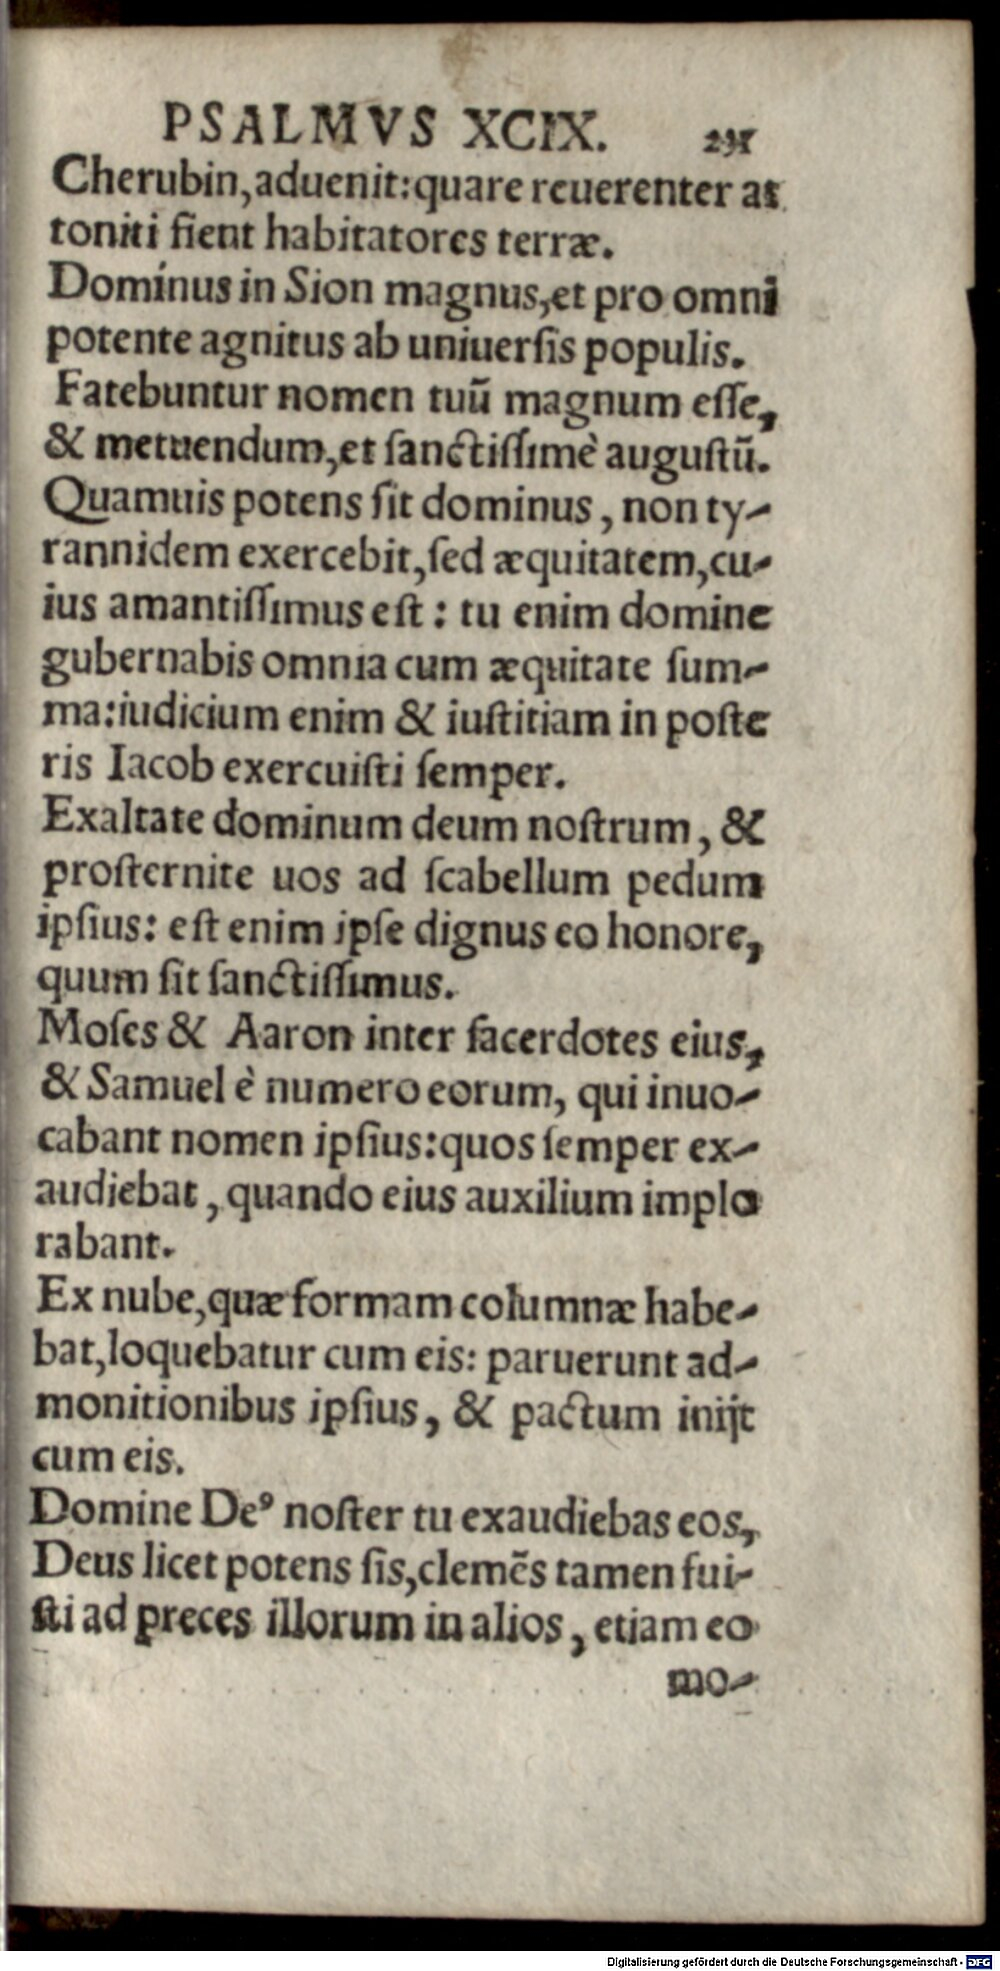 PSALMVS XCIX. 231
Cherubin, aduenit: quare reuerenter at
toniti fient habitatores terræ.
Domínus in Sion magnus, et pro omni
potente agnitus ab uniuerſis populis.
Fatebuntur nomen tuū magnum eſſe,
& metuendum, et ſanctiſſimè auguſtū.
Quamuis potens ſit dominus, non ty-
rannidem exercebit, ſed æquitatem, cu-
ius amantiſſimus eſt: tu enim domine
gubernabis omnia cum æquitate ſum-
ma: iudicium enim & iuſtitiam in poſte
ris Iacob exercuiſti ſemper.
Exaltate dominum deum noſtrum, &
proſternite uos ad ſcabellum pedum
ipſius: eſt enim ipſe dignus eo honore,
quum ſit ſanctiſſimus.
Moſes & Aaron inter ſacerdotes eius,
& Samuel è numero eorum, qui inuo-
cabant nomen ipſius: quos ſemper ex-
audiebat, quando eius auxilium implo
rabant.
Ex nube, quæ formam columnæ habe-
bat, loquebatur cum eis: paruerunt ad-
monitionibus ipſius, & pactum inijt
cum eis.
Domine Deꝰ noſter tu exaudiebas eos,
Deus licet potens ſis, clemēs tamen fui-
ſti ad preces illorum in alios, etiam eo
mo-
Digitalisierung gefördert durch die Deutsche Forschungsgemeinschaft - DFG